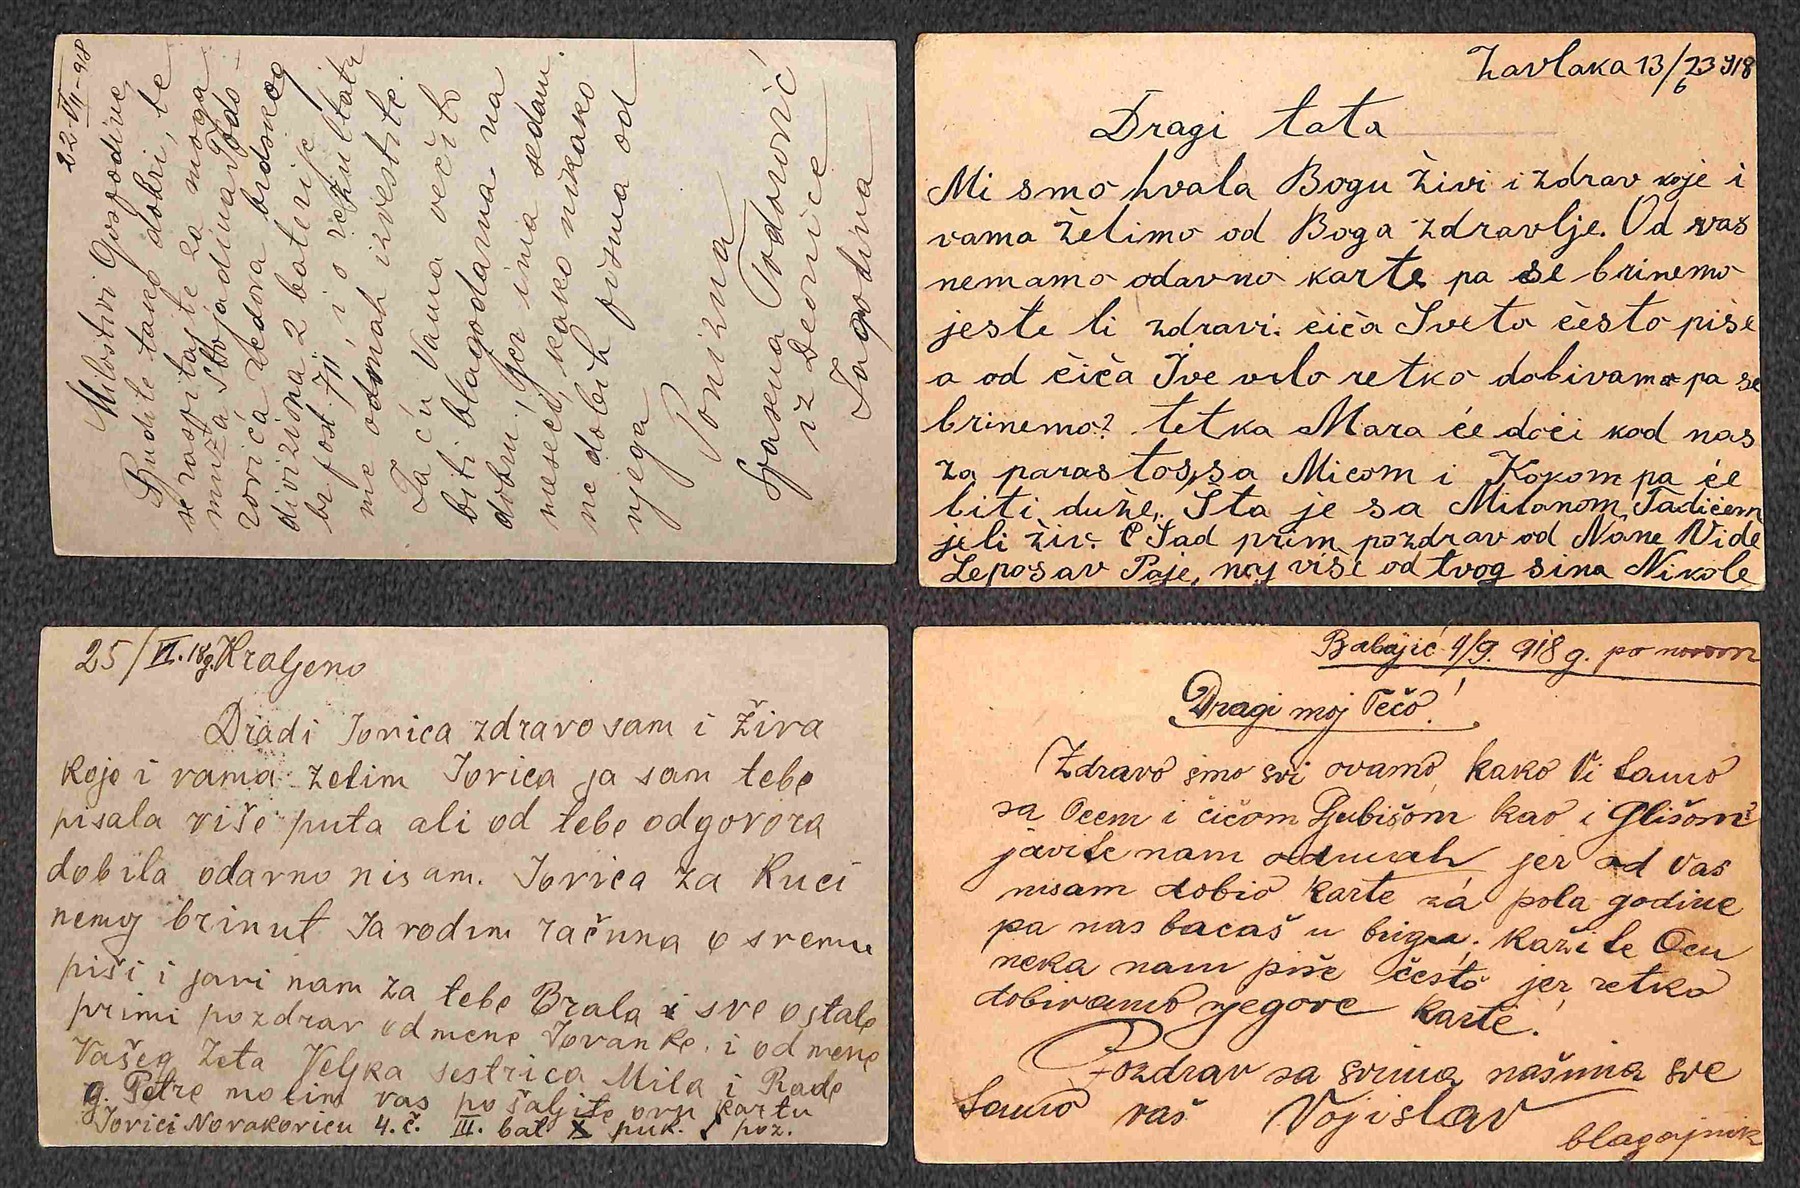 22 VII - 918
Milostivi Gospodine,
Budite tako dobri, te
se raspitajte za moga
muža Stojadina Todo-
rovića redova brdskog
diviziona 2 baterije
br post 711 i o rezultatu
me odmah izvestite.
Ja ću Vama večito
biti blagodarna na
dobru! Jer ima sedam
meseci, kako nikako
ne dobih pizma od
njega
Ponizna
Spasena Todorović
iz Deonice
Jagodina
Zavlaka 13/23 918
6
Dragi tata
Mi smo hvala Bogu živi i zdrav koje i
vama želimo od Boga zdravlje. Od vas
nemamo odavno karte pa se brinemo
jeste li zdravi. čiča Sveto često piše
a od čiča Ive vrlo retko dobivamo pa se
brinemo? tetka Mara će doći kod nas
za parastos, sa Micom i Kokom pa će
biti duže. Šta je sa Milanom Tadićem
jeli živ. Sad prim pozdrav od Nane Vide
Leposav Paje, naj više od tvog sina Nikole
25/VI.18g. Kraljevo
Dradi Jovica zdravo sam i živa
koje i vama želim Jovica ja sam tebe
pisala više puta ali od tebe odgovora
dobila odavno nisam. Jovica za Kuci
nemoj brinut Ja vodim računa o svemu
piši i javi nam za tebe Brala i sve ostale
primi pozdrav od mene Jovanke. i od mene
Vašeg zeta Veljka sestrica Mila i Rade
g. Petre molim vas pošaljite ovu kartu
Jovici Novakovicu 4. č. III. bat. X puk. poz.
Babajić 4/9. 918 g. po novom
Dragi moj Tečo!
Zdravo smo svi ovamo kako Vi tamo
sa Ocem i čičom Ljubišom kao i Glišom?
javite nam odmah jer od Vas
nisam dobio karte za pola godine
pa nas bacaš u brigu. Kažite Ocu
neka nam piše često jer retko
dobivamo njegove karte!
Pozdrav sa svima našima sve
tamo vaš Vojislav
blagajnik